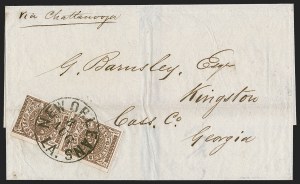 via Chattanooga
G. Barnsley, Esq
Kingston
Cass. Co.
Georgia
NEW ORLEANS
LA.